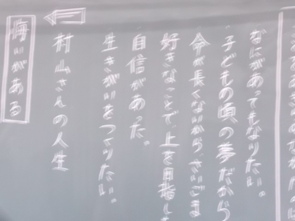 なにがあってもなりたい。
子どもの頃の夢だから
命が長くないからさいごま
好きなことで上を目指
自信があった。
生きがいをつくりたい。
村山さんの人生
悔いがある